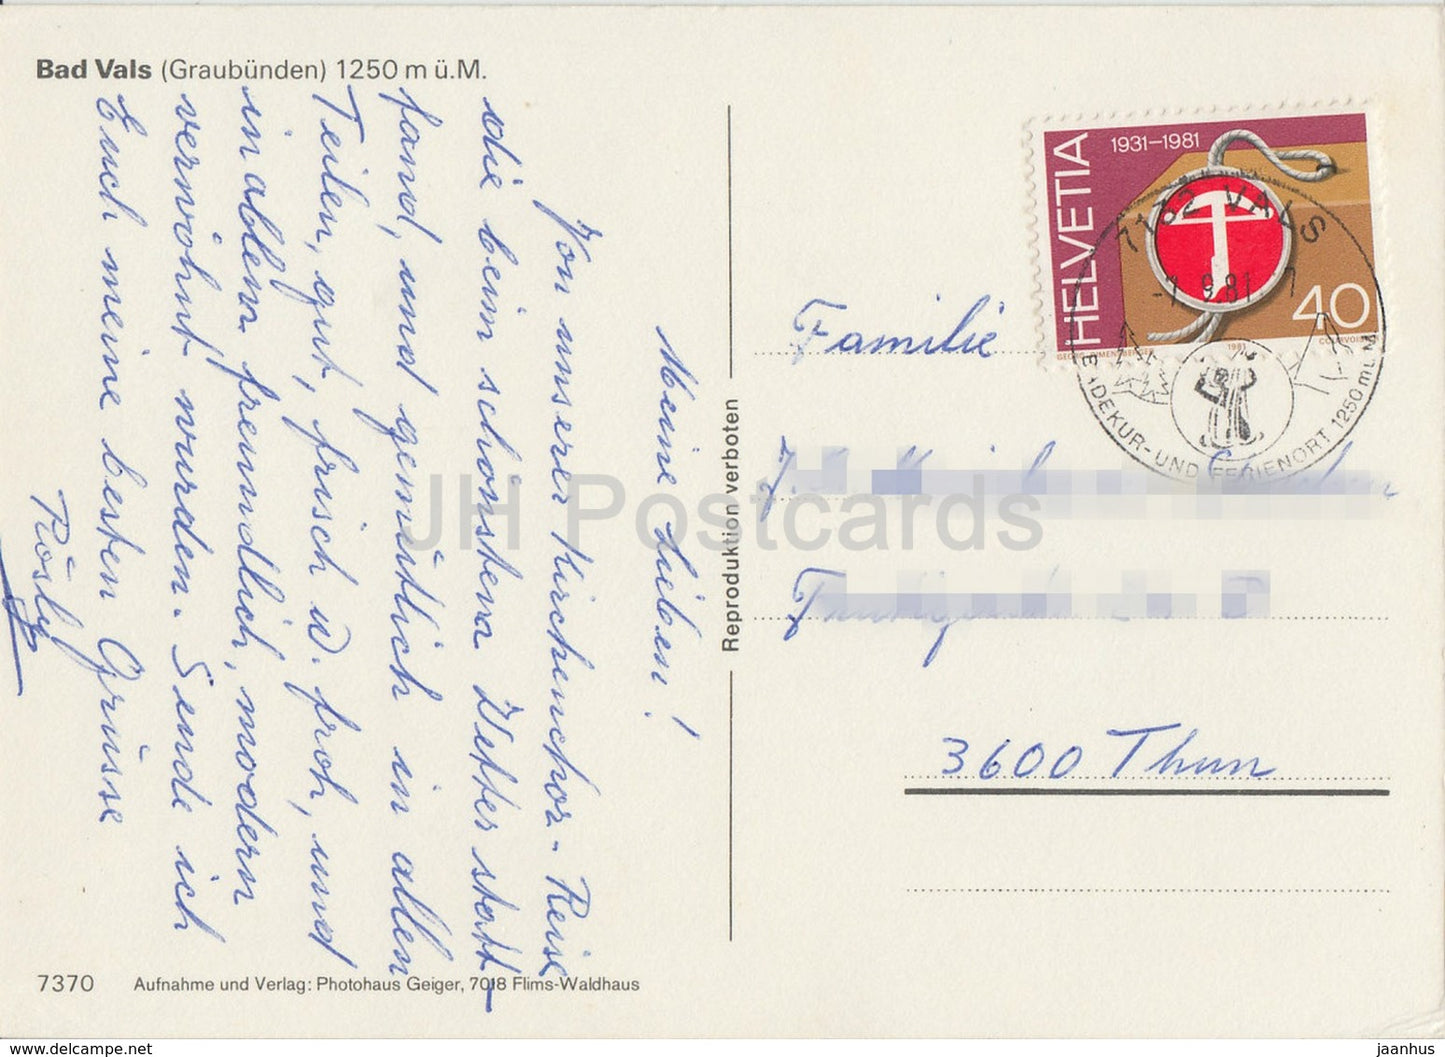 Bad Vals (Graubünden) 1250 m ü.M.
Meine Lieben!
Von unserer Kirchenchor-Reise
die beim schönsten Wetter statt-
fand, und gemütlich in allen
Teilen, gut, frisch u. froh, und
in allem freundlich, modern
verwöhnt wurden. Sende ich
Euch meine besten Grüsse
Rösly
7370 Aufnahme und Verlag: Photohaus Geiger, 7018 Flims-Waldhaus
Reproduktion verboten
HELVETIA
1931–1981
40
1981
COURVOISIER
7132 VALS
-1.9.81. 7
BADEKUR- UND FERIENORT 1250 m ü.M.
Familie
3600 Thun
JH Postcards
jaanhus @ www.delcampe.net